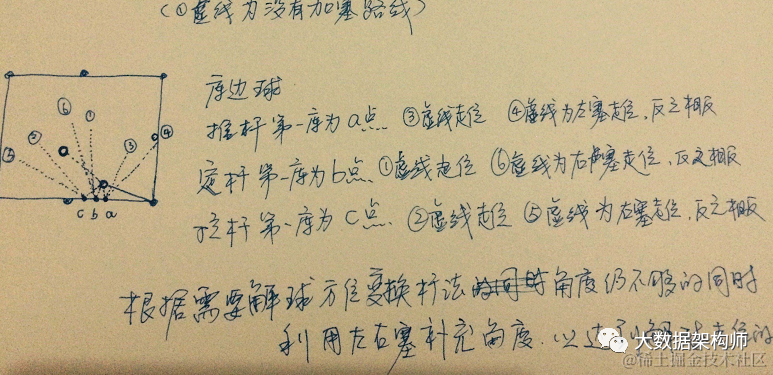 (①虚线为没有加塞路线)
库边球
推杆第一库为a点 ③虚线走位 ④虚线为左塞走位,反之相反
定杆第一库为b点 ①虚线走位 ⑥虚线为右塞走位,反之相反
拉杆第一库为c点 ②虚线走位 ⑤虚线为左塞走位,反之相反
⑥ ①
⑤ ② ③ ④
c b a
根据需要解球方位变换杆法角度仍不够的同时
利用左右塞补充角度.以达到 走位的
大数据架构师
@稀土掘金技术社区